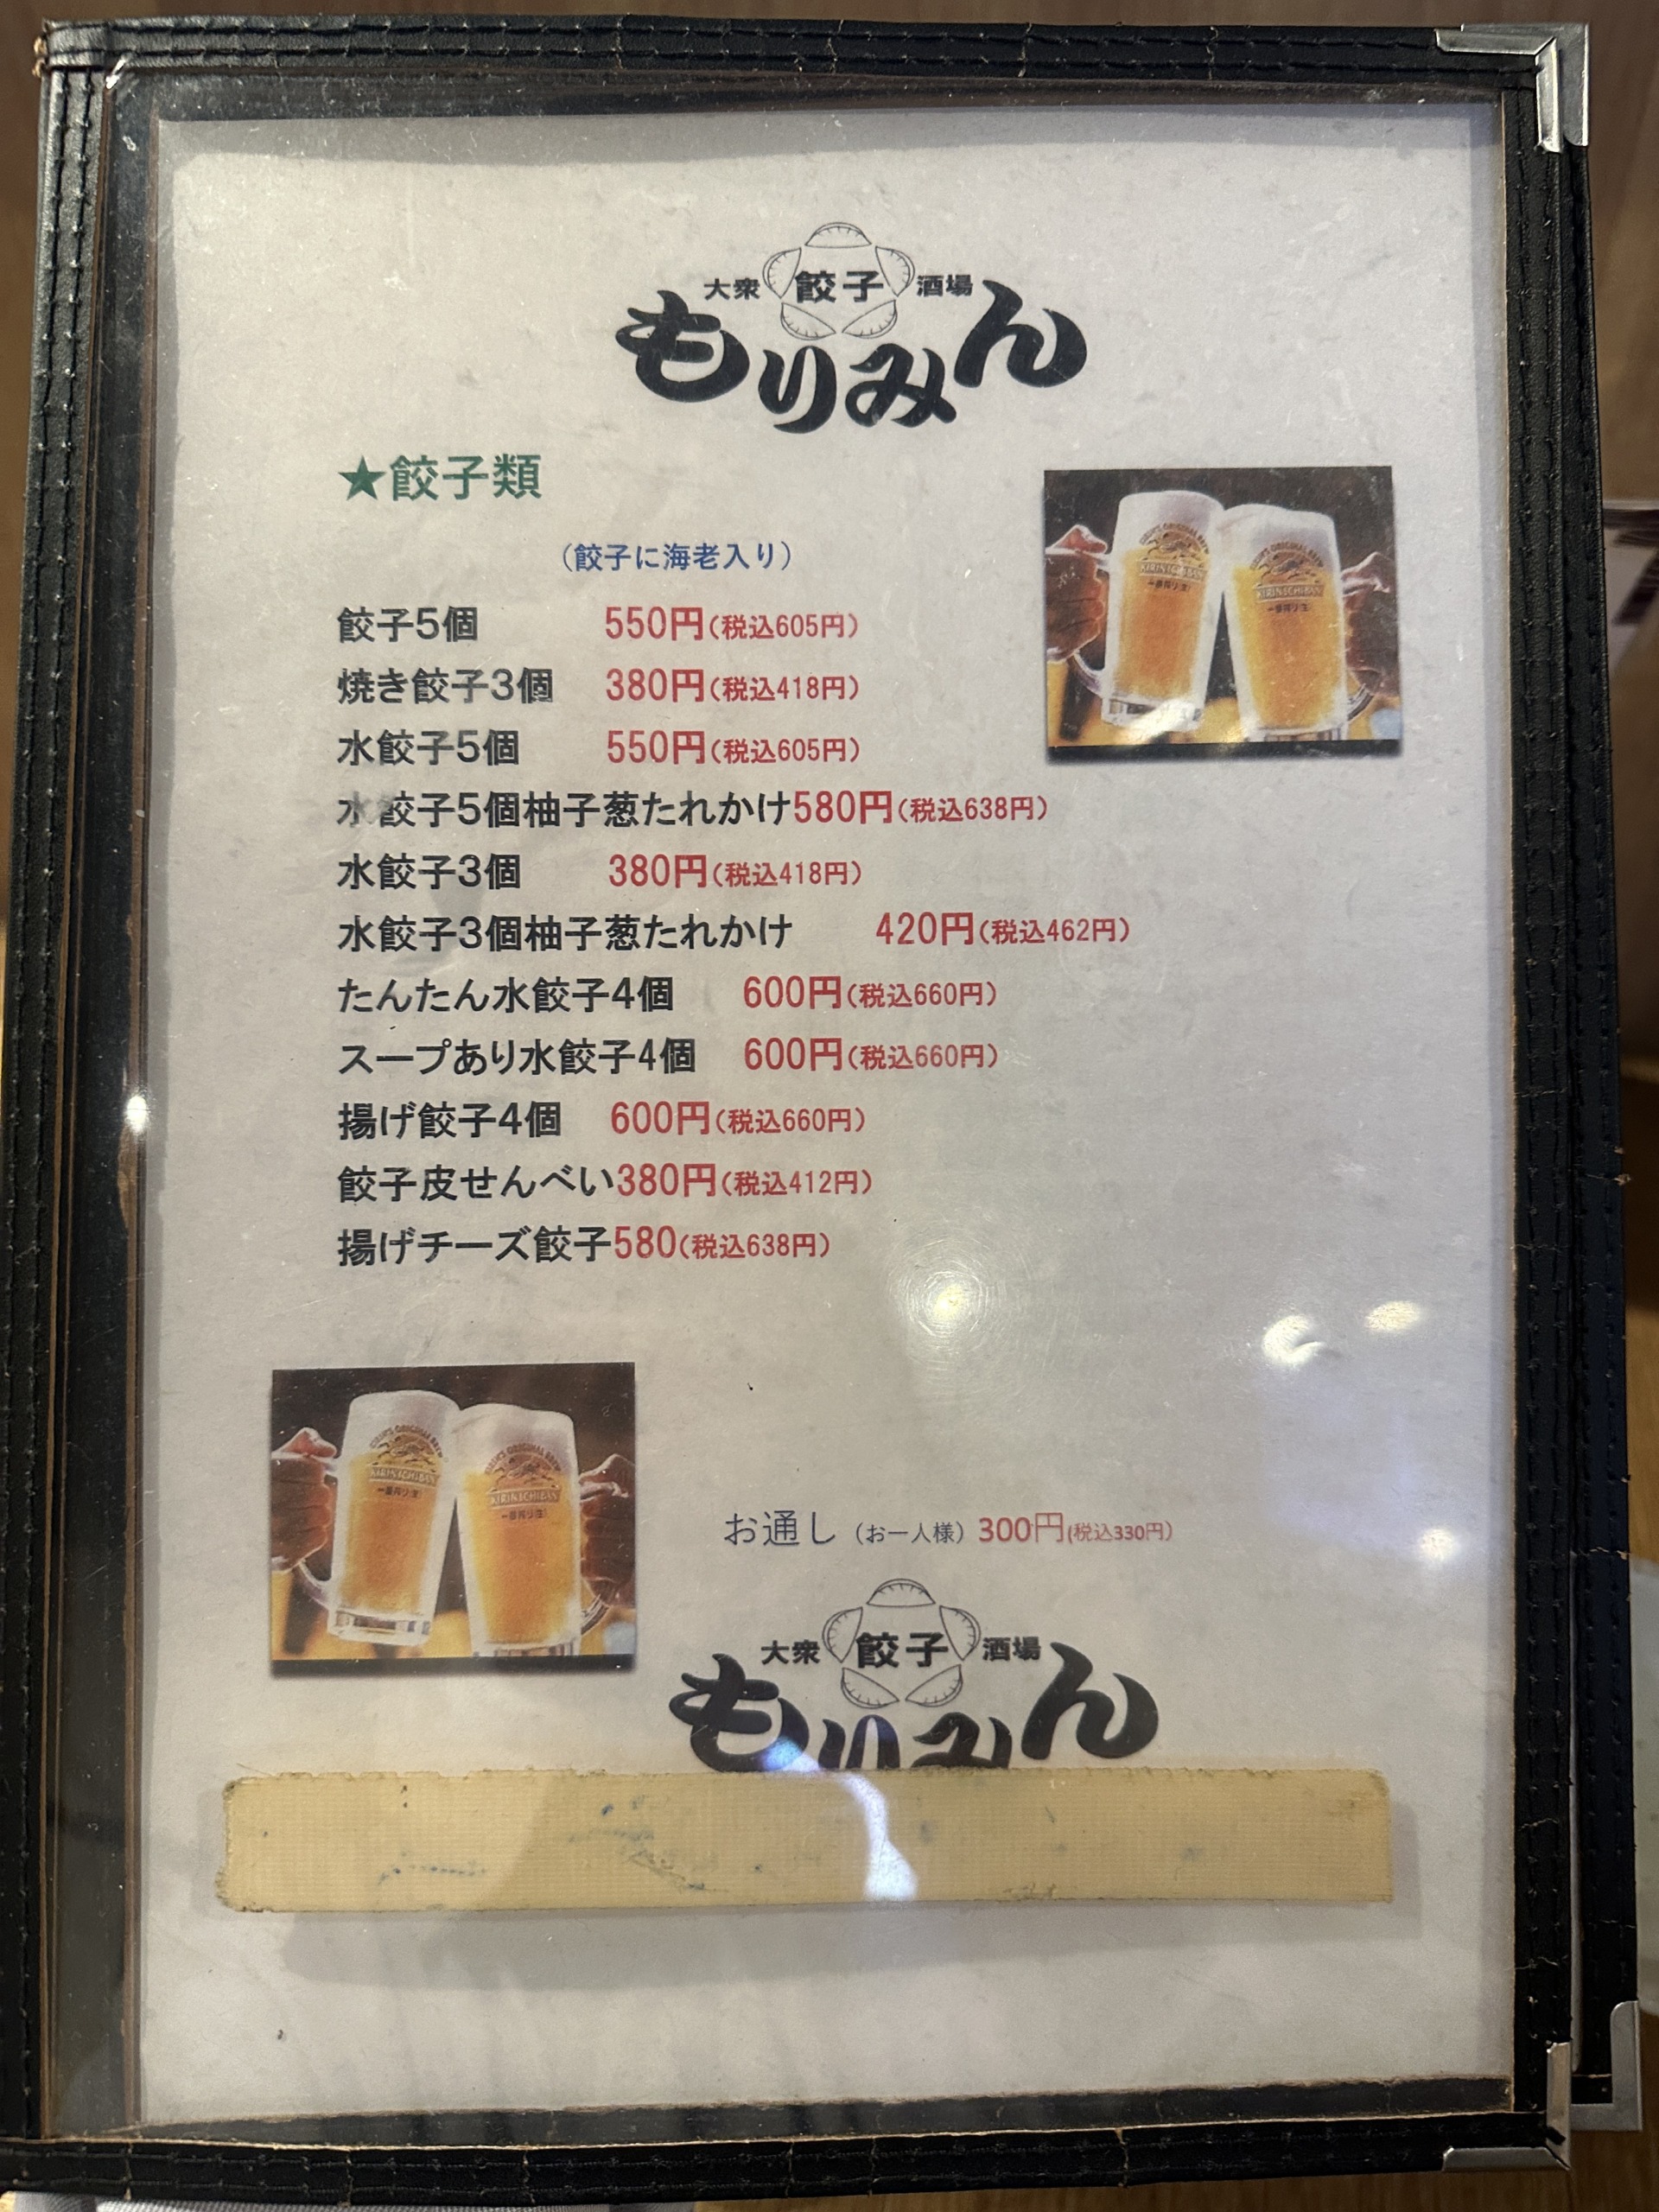 大衆 餃子 酒場
もりみん
★餃子類
（餃子に海老入り）
餃子5個 550円（税込605円）
焼き餃子3個 380円（税込418円）
水餃子5個 550円（税込605円）
水餃子5個柚子葱たれかけ580円（税込638円）
水餃子3個 380円（税込418円）
水餃子3個柚子葱たれかけ 420円（税込462円）
たんたん水餃子4個 600円（税込660円）
スープあり水餃子4個 600円（税込660円）
揚げ餃子4個 600円（税込660円）
餃子皮せんべい380円（税込412円）
揚げチーズ餃子580（税込638円）
KIRIN ICHIBAN
一番搾り
KIRIN ICHIBAN
一番搾り
KIRIN ICHIBAN
一番搾り
KIRIN ICHIBAN
一番搾り
お通し（お一人様）300円(税込330円）
大衆 餃子 酒場
もりみん